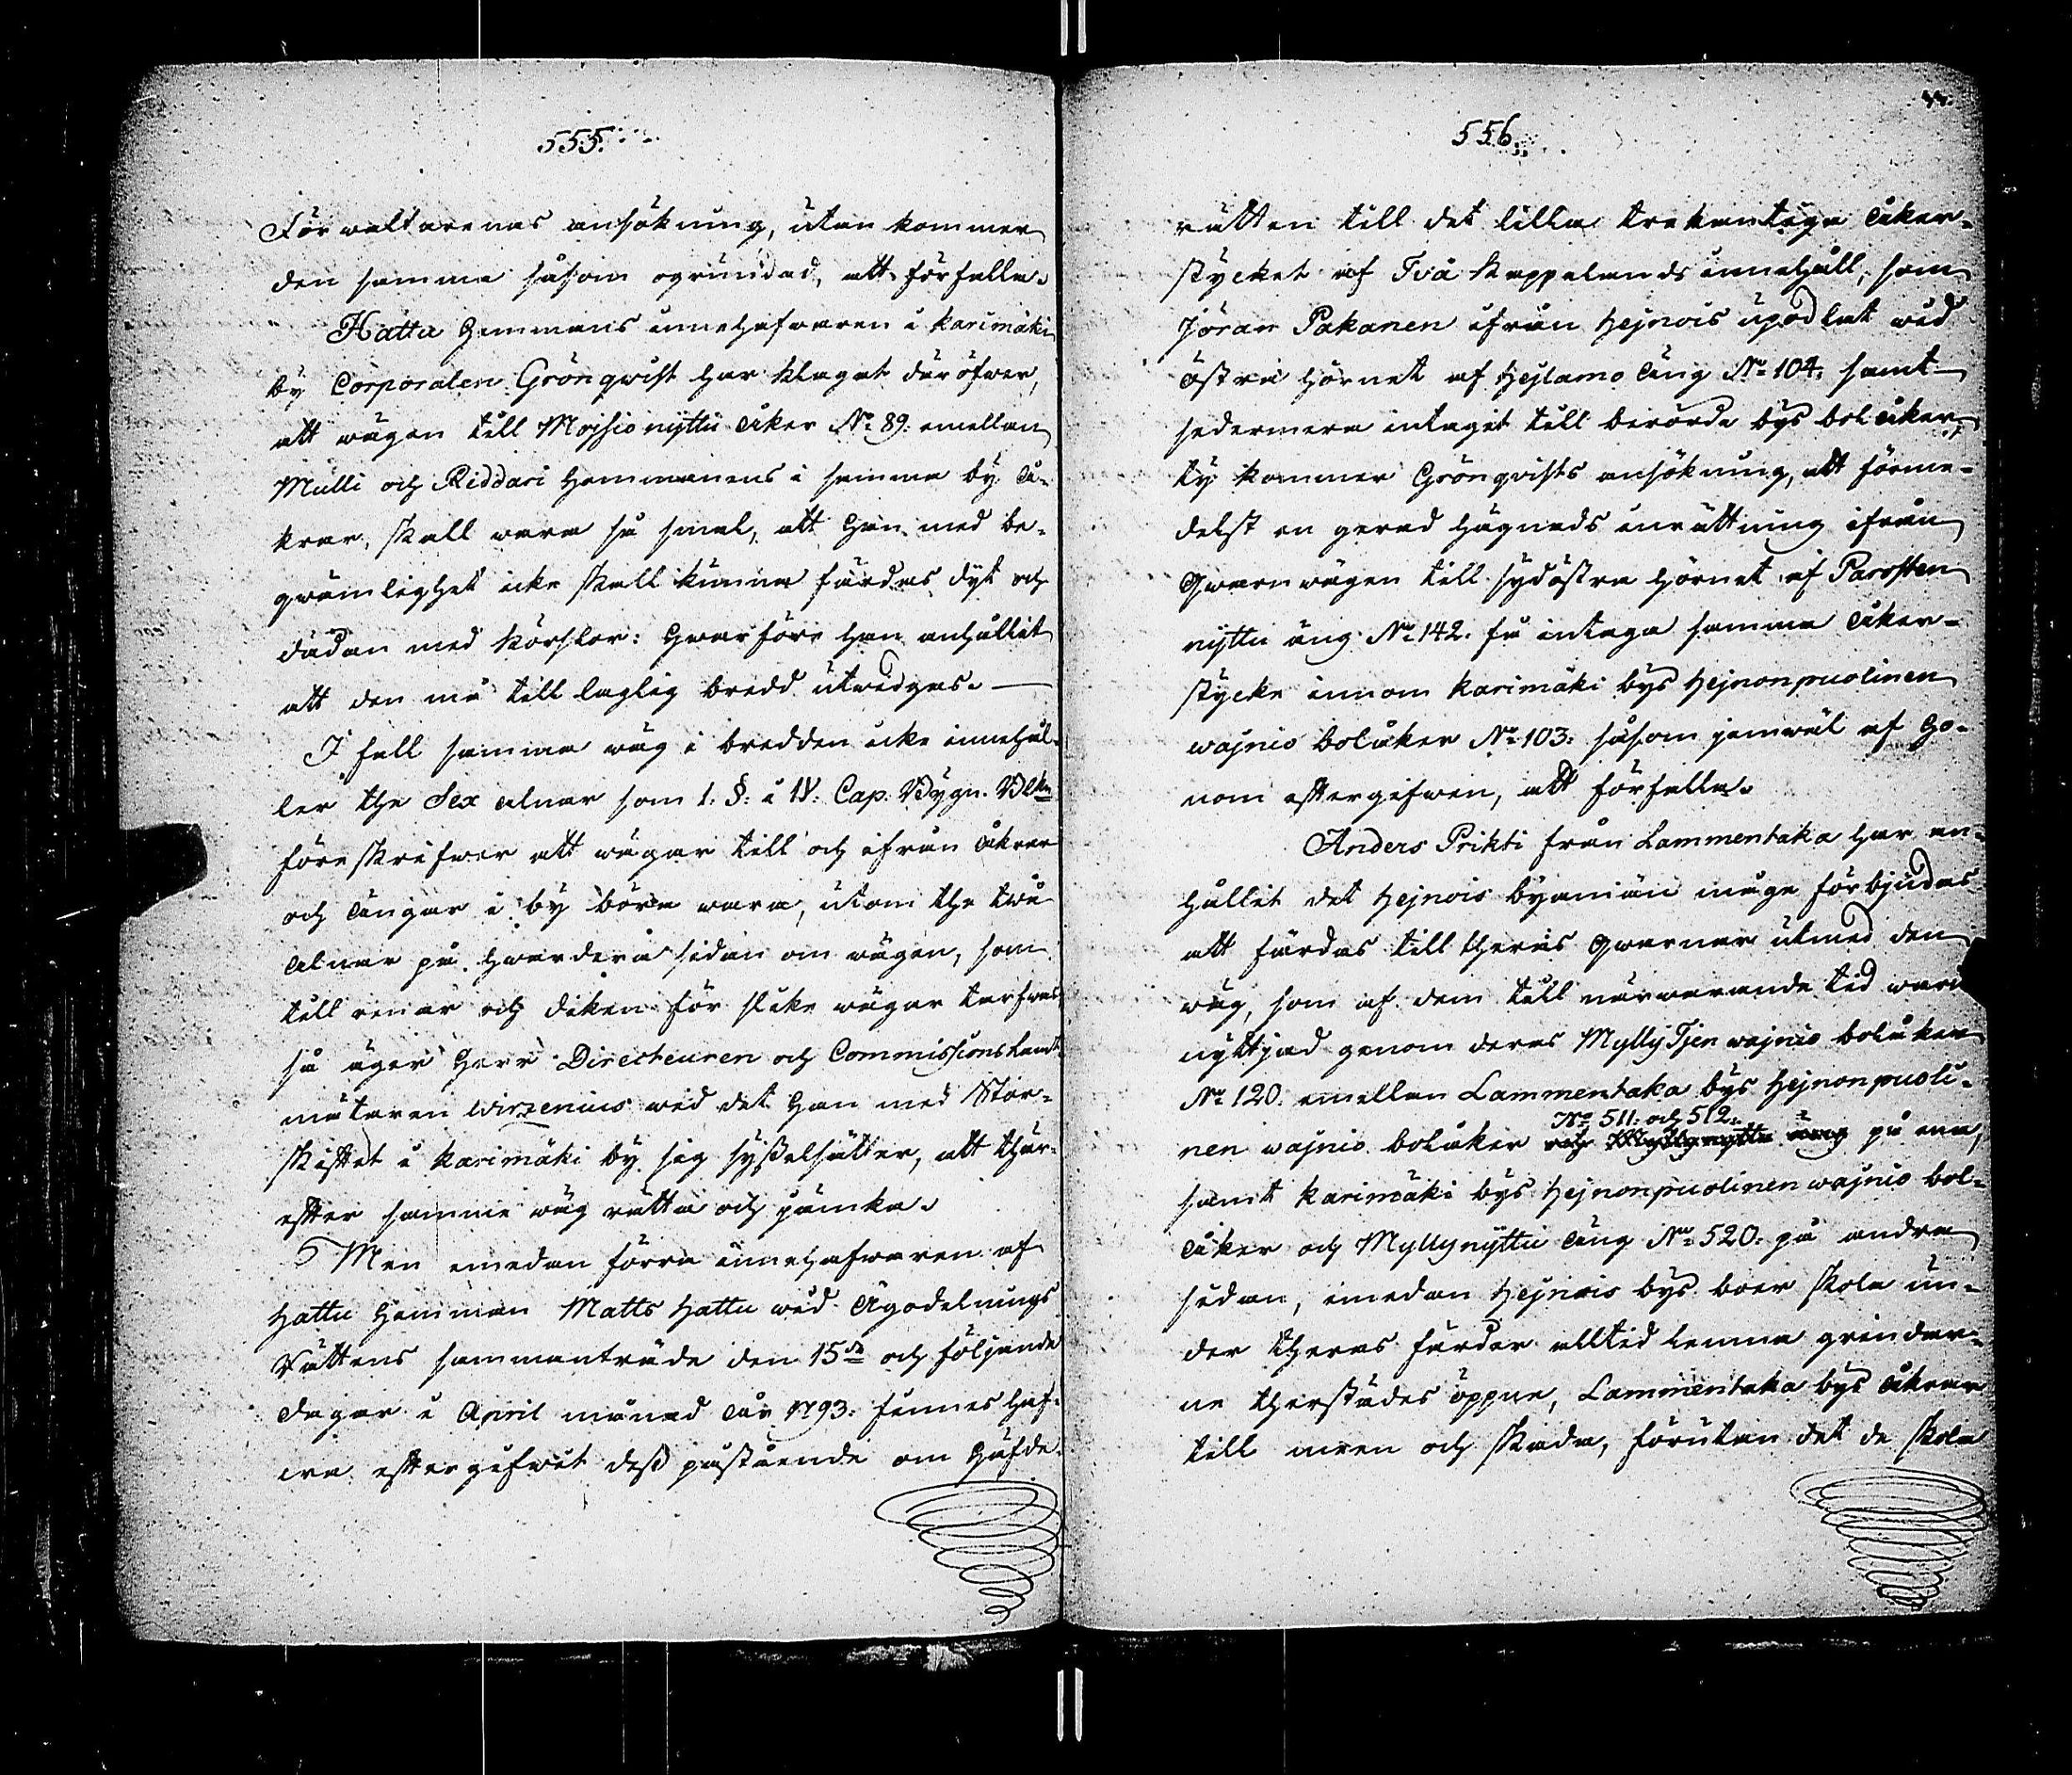 555.
Förwaltarenas ansökning, utan kommer
den samma såsom ogrundad, att förfalla.
Hattu Hemmans innehafwaren i Karimäki
by Corporalen Grönqwist har klagat däröfwer,
att wägen till Moisionyttu åker No 89. emellan
Mulli och Riddari Hemmanens i samma by å-
krar, skall wara så smal, att han med be-
qwämlighet icke skall kunna färdas dyt och
dädan med körslor: hwarföre han anhållit
att den må till laglig bredd utwidgas. —
I fall samma wäg i bredden icke innehål-
ler the Sex alnar som 1. §. i IV. Cap. Bygn. Blkn
föreskrifwer att wägar till och ifrån åkrar
och ängar i by böra wara, utom the twå
alnar på hwardera sidan om wägen, som
till renar och diken för slike wägar tarfwas
så äger Herr Directeuren och Commissions Landt-
mätaren Wirzenius wid det han med Stor-
skiftet i Karimäki by sig sysselsätter, att thär-
efter samme wäg rätta och jämka.
Men emedan förra innehafwaren af
Hattu Hemman Matts Hattu wid Ägodelnings
Rättens sammanträde den 15de och följande
dagar i April månad år 1793. finnes haf-
wa eftergifwit dess påstående om häfde-
556.
rätten till det lilla trekantiga åker-
stycket af Två kappelands innehåll, som
Jöran Pakanen ifrån Hejnois upodlat wid
östra hörnet af Hejlamo äng No 104. samt
sedermera intagit till berörde bys bolåker,
ty kommer Grönqvists ansökning, att förme-
delst en gerad hägnads inrättning ifrån
Qwarnwägen till sydöstra hörnet af Parssten
nyttu äng No 142. få intaga samma åker-
stycke innom Karimäki bys Hejnonpuolinen
wajnio bolåker No 103. såsom jemwäl af ho-
nom eftergifwen, att förfalla.
Anders Prikti från Lammentaka har an-
hållit det Hejnois byamän måge förbjudas
att färdas till theras Qwarnar utmed den
wäg, som af dem till närwarande tid warit
nyttjad genom deras MyllyTjen wajnio bolåker
No 120. emellan Lammentaka bys Hejnonpuoli-
No 511. och 512.
nen wajnio bolåker och Myllynyttu äng på ena,
samt Karimäki bys Hejnonpuolinen wajnio bol-
åker och Myllynyttu äng No 520. på andra
sidan, emedan Hejnois bys boer skola un-
der theras färder alltid lemna grindar-
ne therstädes öppne, Lammentaka bys åkrar
till men och skada, förutan det de skola